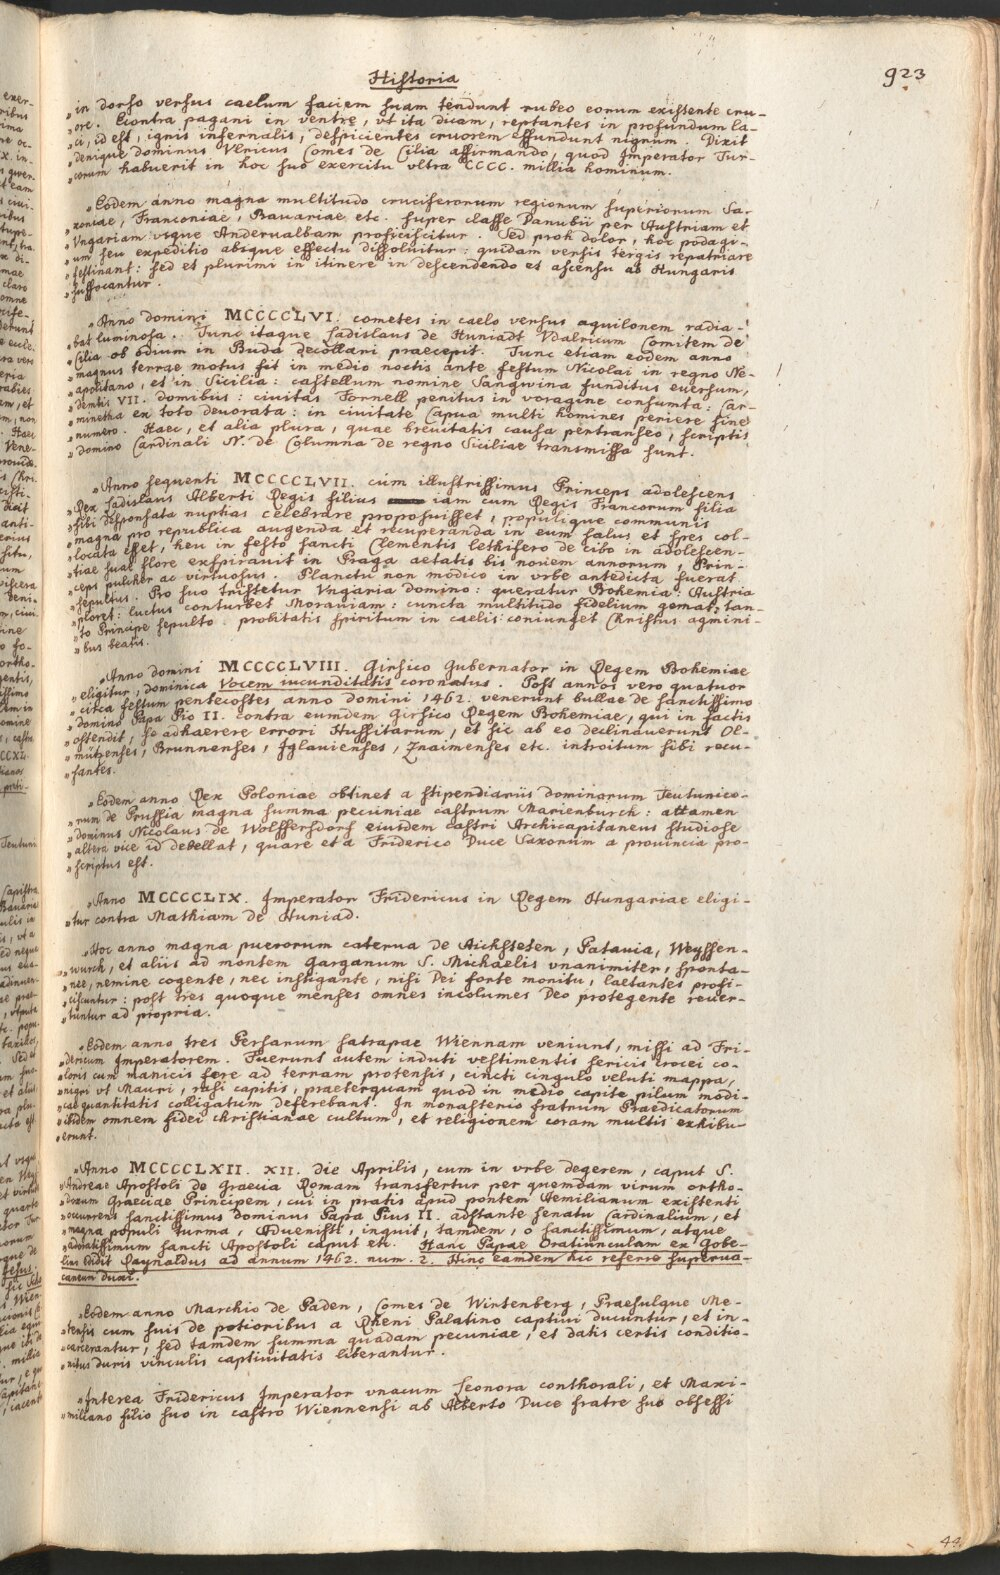 Historia
923
„in dorso versus caelum faciem suam tendunt rubeo eorum existente cru-
„ore. Econtra pagani in ventre, vt ita dicam, reptantes in profundum la-
„ci, id est, ignis infernalis, despicientes cruorem effundunt nigrum. Dixit
„denique dominus Vlricus Comes de Cilia affirmando, quod Imperator Tur-
„corum habuerit in hoc suo exercitu vltra CCCC. millia hominum.
„Eodem anno magna multitudo cruciferorum regionum superiorum Sa-
„xoniae, Franconiae, Bauariae etc. super classe Danubii per Austriam et
„Vngariam vsque Anderualbam proficiscitur. Sed proh dolor, hoc podagi-
„um seu expeditio absque effectu dissoluitur: quidam versis tergis repatriare
„festinant: sed et plurimi in itinere in descendendo et ascensu ab Hungaris
„suffocantur.
„Anno domini MCCCCLVI. cometes in caelo versus aquilonem radia-
„bat luminosa. Tunc itaque Ladislaus de Huniadt Vdalricum Comitem de
„Cilia ob odium in Buda decollari praecepit. Tunc etiam eodem anno
„magnus terrae motus fit in medio noctis ante festum Nicolai in regno Ne-
„apolitano, et in Sicilia: castellum nomine Sangwina funditus euersum,
„demtis VII. domibus: ciuitas Tornell penitus in voragine consumta: Car-
„minetha ex toto deuorata: in ciuitate Capua multi homines periere sine
„numero. Haec, et alia plura, quae breuitatis causa pertranseo, scriptis
„domino Cardinali N. de Columna de regno Siciliae transmissa sunt.
„Anno sequenti MCCCCLVII. cum illustrissimus Princeps adolescens
„Rex Ladislaus Alberti Regis filius iam cum Regis Francorum filia
„sibi desponsata nuptias celebrare proposuisset, populique communis
„magna pro republica augenda et recuperanda in eum salus et spes col-
„locata esset, heu in festo sancti Clementis lethifero de cibo in adolescen-
„tiae suae flore exspirauit in Praga aetatis bis nouem annorum, Prin-
„ceps pulcher ac virtuosus. Planctu non modico in vrbe antedicta fuerat
„sepultus. Pro suo tristetur Vngaria domino: queratur Bohemia: Austria
„ploret: luctus conturbet Morauiam: cuncta multitudo fidelium gemat, tan-
„to Principe sepulto. probitatis spiritum in caelis coniunget Christus agmini-
„bus beatis.
„Anno domini MCCCCLVIII. Girsico Gubernator in Regem Bohemiae
„eligitur, dominica Vocem iucunditatis coronatus. Post annos vero quatuor
„circa festum pentecostes anno domini 1462. venerunt bullae de sanctissimo
„domino Papa Pio II. contra eumdem Girsico Regem Bohemiae, qui in factis
„ostendit, se adhaerere errori Hussitarum, et sic ab eo declinauerunt Ol-
„mützenses, Brunnenses, Iglauienses, Znaimenses etc. introitum sibi recu-
„santes.
„Eodem anno Rex Poloniae obtinet a stipendiariis dominorum Teutunico-
„rum de Prussia magna summa pecuniae castrum Marienburch: attamen
„dominus Nicolaus de Wolffersdorf eiusdem castri Archicapitaneus studiose
„altera vice id debellat, quare et a Friderico Duce Saxonum a prouincia pro-
„scriptus est.
„Anno MCCCCLIX. Imperator Fridericus in Regem Hungariae eligi-
„tur contra Mathiam de Huniad.
„Hoc anno magna puerorum caterua de Aichsteten, Patauia, Weyssen-
„wurch, et aliis ad montem Garganum S. Michaelis vnanimiter, sponta-
„nee, nemine cogente, nec instigante, nisi Dei forte monitu, laetantes profi-
„ciscuntur: post tres quoque menses omnes incolumes Deo protegente reuer-
„tuntur ad propria.
„Eodem anno tres Persarum satrapae Wiennam veniunt, missi ad Fri-
„dericum Imperatorem. Fuerunt autem induti vestimentis sericis crocei co-
„loris cum manicis fere ad terram protensis, cincti cingulo veluti mappa,
„nigri vt Mauri, rasi capitis, praeterquam quod in medio capite pilum modi-
„cae quantitatis colligatum deferebant. In monasterio fratrum Praedicatorum
„ibidem omnem fidei christianae cultum, et religionem coram multis exhibu-
„erunt.
„Anno MCCCCLXII. XII. die Aprilis, cum in vrbe degerem, caput S.
„Andreae Apostoli de Graecia Romam transfertur per quemdam virum ortho-
„doxum Graeciae Principem, cui in pratis apud pontem Aemilianum existenti
„occurrens sanctissimus dominus Papa Pius II. adstante senatu Cardinalium, et
„magna populi turma, Aduenisti, inquit, tamdem, o sanctissimum, atque
„adoratissimum sancti Apostoli caput etc. Hanc Papae Oratiunculam ex Gobe-
lino edidit Raynaldus ad annum 1462. num. 2. Hinc eamdem hic referre superua-
caneum duxi.
„Eodem anno Marchio de Paden, Comes de Wirtenberg, Praesulque Me-
„tensis cum suis de potioribus a Rheni Palatino captiui ducuntur, et in-
„carcerantur, sed tamdem summa quadam pecuniae, et datis certis conditio-
„nibus duris vinculis captiuitatis liberantur.
„Interea Fridericus Imperator vnacum Leonora conthorali, et Maxi-
„miliano filio suo in castro Wiennensi ab Alberto Duce fratre suo obsessi
44